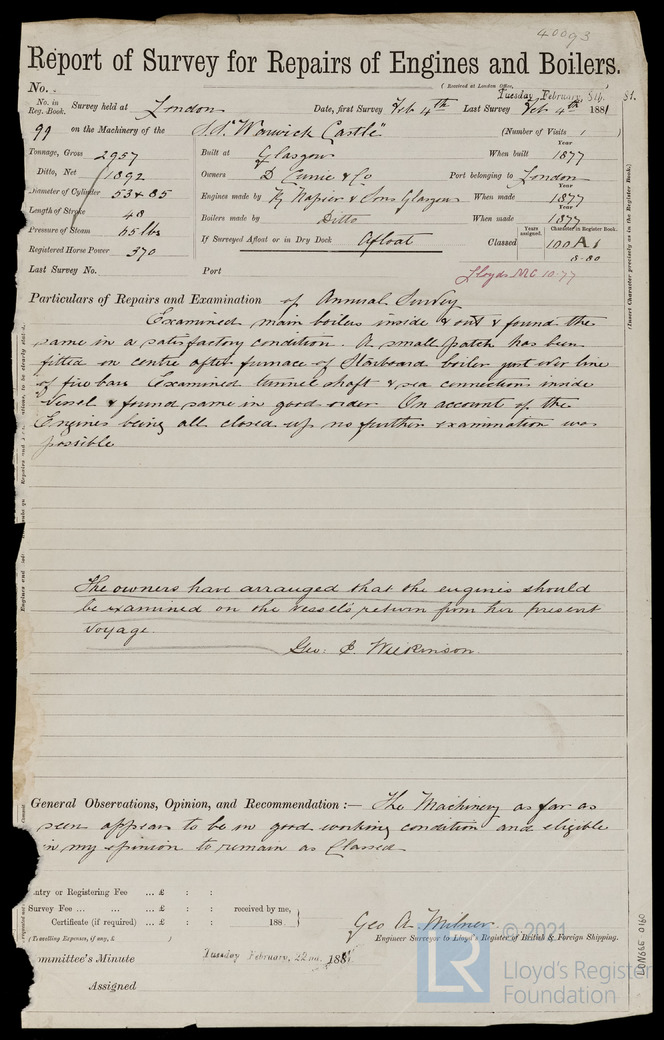 40093
Report of Survey for Repairs of Engines and Boilers.
(Received at London Office,
No.
Tuesday February, 8th, 81.
No. in Reg. Book. Survey held at London Date, first Survey Feb 4th Last Survey Feb 4th 1881
99 on the Machinery of the S.S. "Warwick Castle" (Number of Visits 1 )
Tonnage, Gross 2957 Built at Glasgow When built Year 1877
Ditto, Net 1892 Owners D Currie & Co Port belonging to London
Diameter of Cylinder 53 & 85 Engines made by R Napier & Sons Glasgow When made Year 1877
Length of Stroke 48 Boilers made by Ditto When made Year 1877
Pressure of Steam 65 lbs If Surveyed Afloat or in Dry Dock Afloat Classed Years assigned. Character in Register Book. 100 A 1
Registered Horse Power 370 8.80
Last Survey No. Port Lloyds MC 10.77
(Insert Character precisely as in the Register Book.)
Particulars of Repairs and Examination of Annual Survey
Examined main boilers inside & out & found the
same in a satisfactory condition. A small patch has been
fitted on centre after furnace of Starboard boiler just over line
of fire bars Examined tunnel shaft & sea connections inside
Vessel & found same in good order On account of the
Engines being all closed up no further examination was
possible
The owners have arranged that the engines should
be examined on the vessel's return from her present
voyage.
Geo: Wilkinson.
General Observations, Opinion, and Recommendation :— The Machinery as far as
seen appears to be in good working condition and eligible
in my opinion to remain as Classed
ntry or Registering Fee ... £ : :
Survey Fee ... ... ... £ : : received by me,
Certificate (if required) ... £ : : 188
(Travelling Expenses, if any, £ )
Geo A. Milner
Engineer Surveyor to Lloyd's Register of British & Foreign Shipping.
ommittee's Minute Tuesday February, 22nd. 1881
Assigned
LON665 0160
© 2021
LR
Lloyd's Register
Foundation